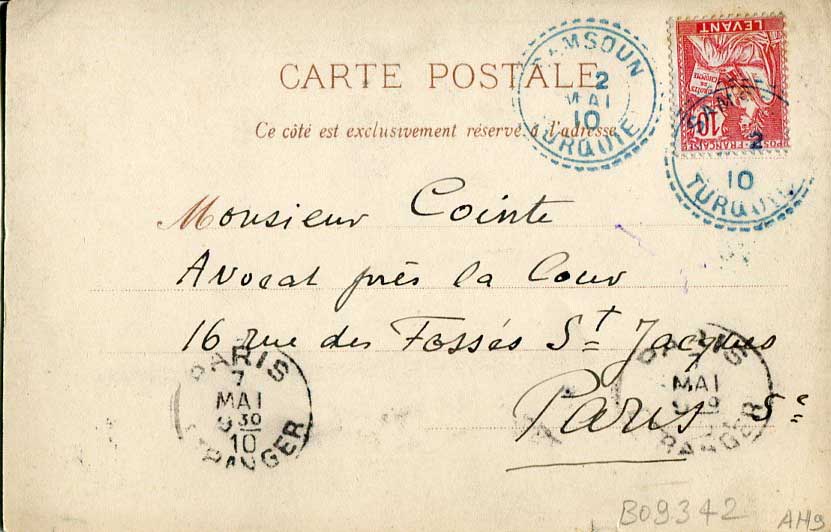 CARTE POSTALE
Ce côté est exclusivement réservé à l'adresse
SAMSOUN
2
MAI
10
TURQUIE
LEVANT
10
POSTE FRANÇAISE
SAMSOUN
2
10
TURQUIE
Monsieur Cointe
Avocat près la Cour
16 rue des Fossés St Jacques
Paris 5e
PARIS
7
MAI
9 30
10
ETRANGER
PARIS
MAI
ETRANGER
B09342
AH9